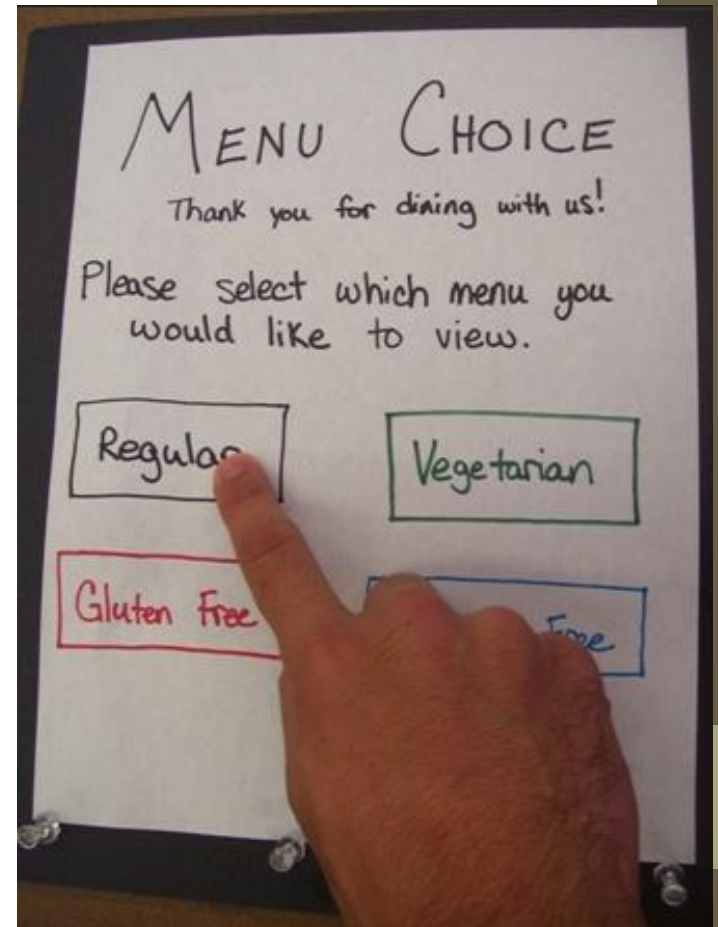 MENU CHOICE
Thank you for dining with us!
Please select which menu you
would like to view.
Regular
Vegetarian
Gluten Free
Free